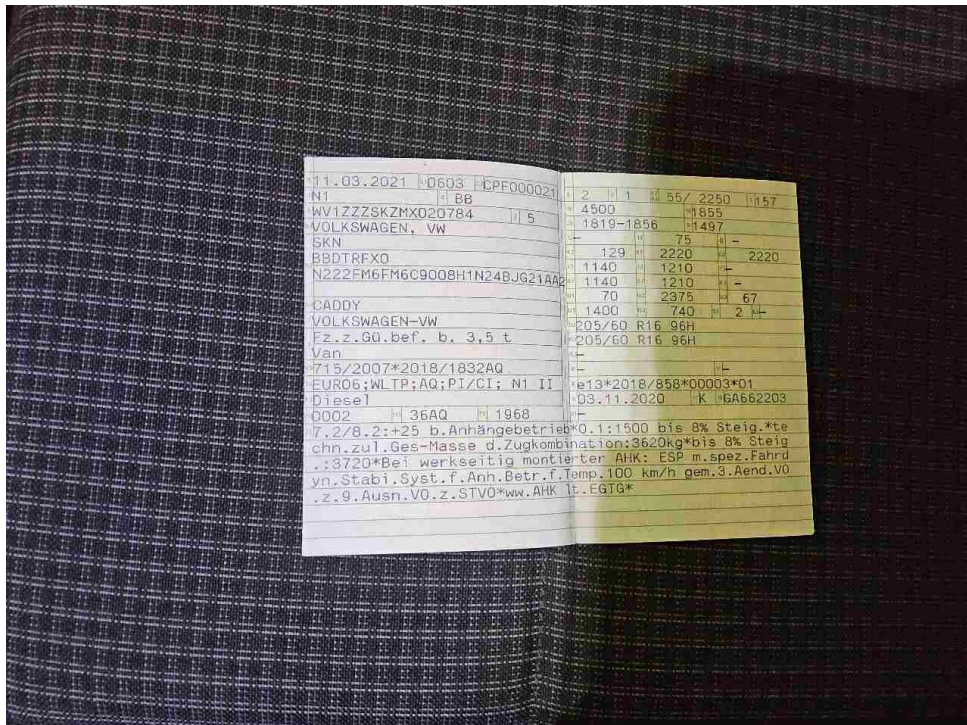 11.03.2021 0603 CPF000021
N1 BB
WV1ZZZSKZMX020784 5
VOLKSWAGEN, VW
SKN
BBDTRFX0
N222FM6FM6C9008H1N24BJG21AA2
CADDY
VOLKSWAGEN-VW
Fz.z.Gü.bef. b. 3,5 t
Van
715/2007*2018/1832AQ
EURO6;WLTP;AQ;PI/CI; N1 II
Diesel
0002 36AQ 1968
2 1 55/ 2250 157
4500 1855
1819-1856 1497
- 75 -
129 2220 2220
1140 1210 -
1140 1210 -
70 2375 67
1400 740 2 -
205/60 R16 96H
205/60 R16 96H
-
- -
e13*2018/858*00003*01
03.11.2020 K GA662203
-
7.2/8.2:+25 b.Anhängebetrieb*0.1:1500 bis 8% Steig.*te
chn.zul.Ges-Masse d.Zugkombination:3620kg*bis 8% Steig
.:3720*Bei werkseitig montierter AHK: ESP m.spez.Fahrd
yn.Stabi.Syst.f.Anh.Betr.f.Temp.100 km/h gem.3.Aend.VO
.z.9.Ausn.VO.z.STVO*ww.AHK lt.EGTG*